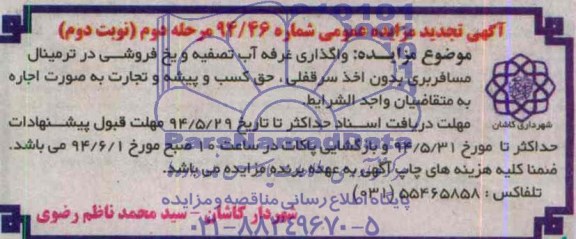 آگهی تجدید مزایده عمومی شماره ۹۴/۴۶ مرحله دوم (نوبت دوم)
موضوع مزایده: واگذاری غرفه آب تصفیه و یخ فروشی در ترمینال
مسافربری بدون اخذ سرقفلی ، حق کسب و پیشه و تجارت به صورت اجاره
به متقاضیان واجد الشرایط.
مهلت دریافت اسناد حداکثر تا تاریخ ۹۴/۵/۲۹ مهلت قبول پیشنهادات
حداکثر تا مورخ ۹۴/۵/۳۱ و بازگشایی پاکات در ساعت ۱۰ صبح مورخ ۹۴/۶/۱ می باشد.
ضمنا کلیه هزینه های چاپ آگهی به عهده برنده مزایده می باشد.
تلفاکس : ۵۵۴۶۵۸۵۸ (۰۳۱)
شهردار کاشان - سید محمد ناظم رضوی
شهرداری کاشان
ParsNamadData
پایگاه اطلاع رسانی مناقصه و مزایده
۰۲۱-۸۸۳۴۹۶۷۰-۵